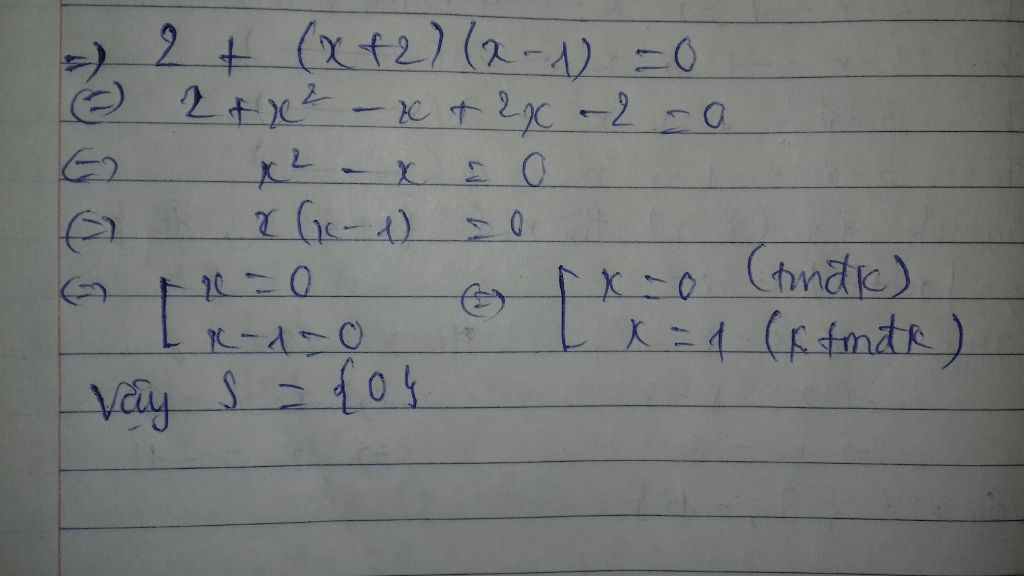 => 2 + (x+2)(x-1) = 0
(=) 2 + x² - x + 2x - 2 = 0
(=) x² - x = 0
(=) x(x-1) = 0
(=) [ x = 0 (=) [ x = 0 (tmđk)
x - 1 = 0 x = 1 (ktmđk)
Vậy S = {0}